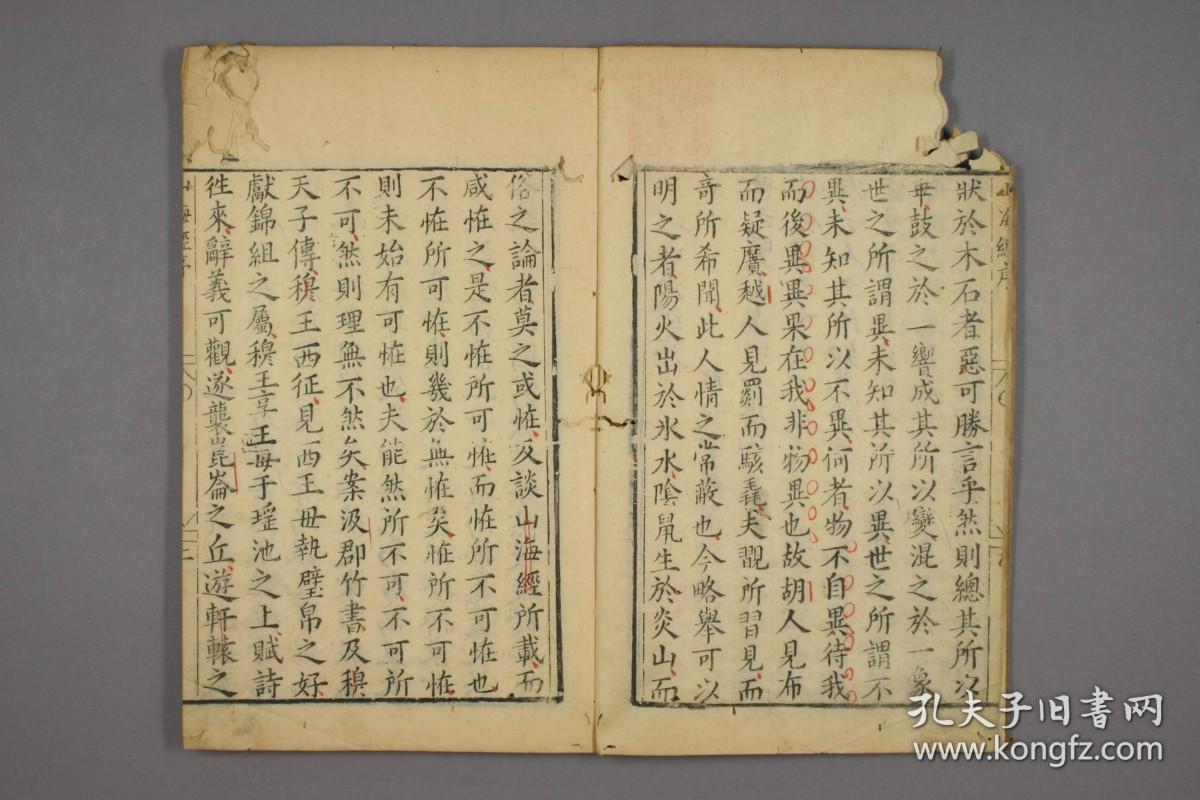 狀於木石者惡可勝言乎然則總其所以
乖鼓之於一響成其所以變混之於一象
世之所謂異未知其所以異世之所謂不
異未知其所以不異何者物不自異待我
而後異異果在我非物異也故胡人見布
而疑黂越人見罽而駭毳夫翫所習見而
竒所希聞此人情之常蔽也今略舉可以
明之者陽火出於氷水陰䑕生於炎山而
俗之論者莫之或恠及談山海經所載而
咸恠之是不恠所可恠而恠所不可恠也
不恠所可恠則幾於無恠矣恠所不可恠
則未始有可恠也夫能然所不可不可所
不可然則理無不然矣案汲郡竹書及穆
天子傳穆王西征見西王毋執璧帛之好
獻錦組之屬穆王享王毋于瑤池之上賦詩
徃來辭義可觀遂襲崑崙之丘遊軒轅之
山海經序
二
孔夫子旧书网
www.kongfz.com